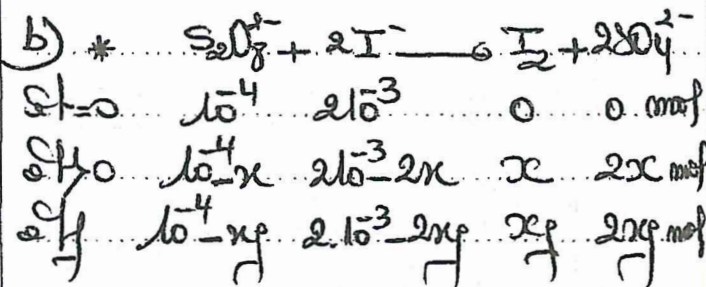 b) * S₂O₈²⁻ + 2I⁻ → I₂ + 2SO₄²⁻
àt=0 10⁻⁴ 2 10⁻³ 0 0 mol
àt>0 10⁻⁴-x 2 10⁻³-2x x 2x mol
àtf 10⁻⁴-xf 2.10⁻³-2xf xf 2xf mol